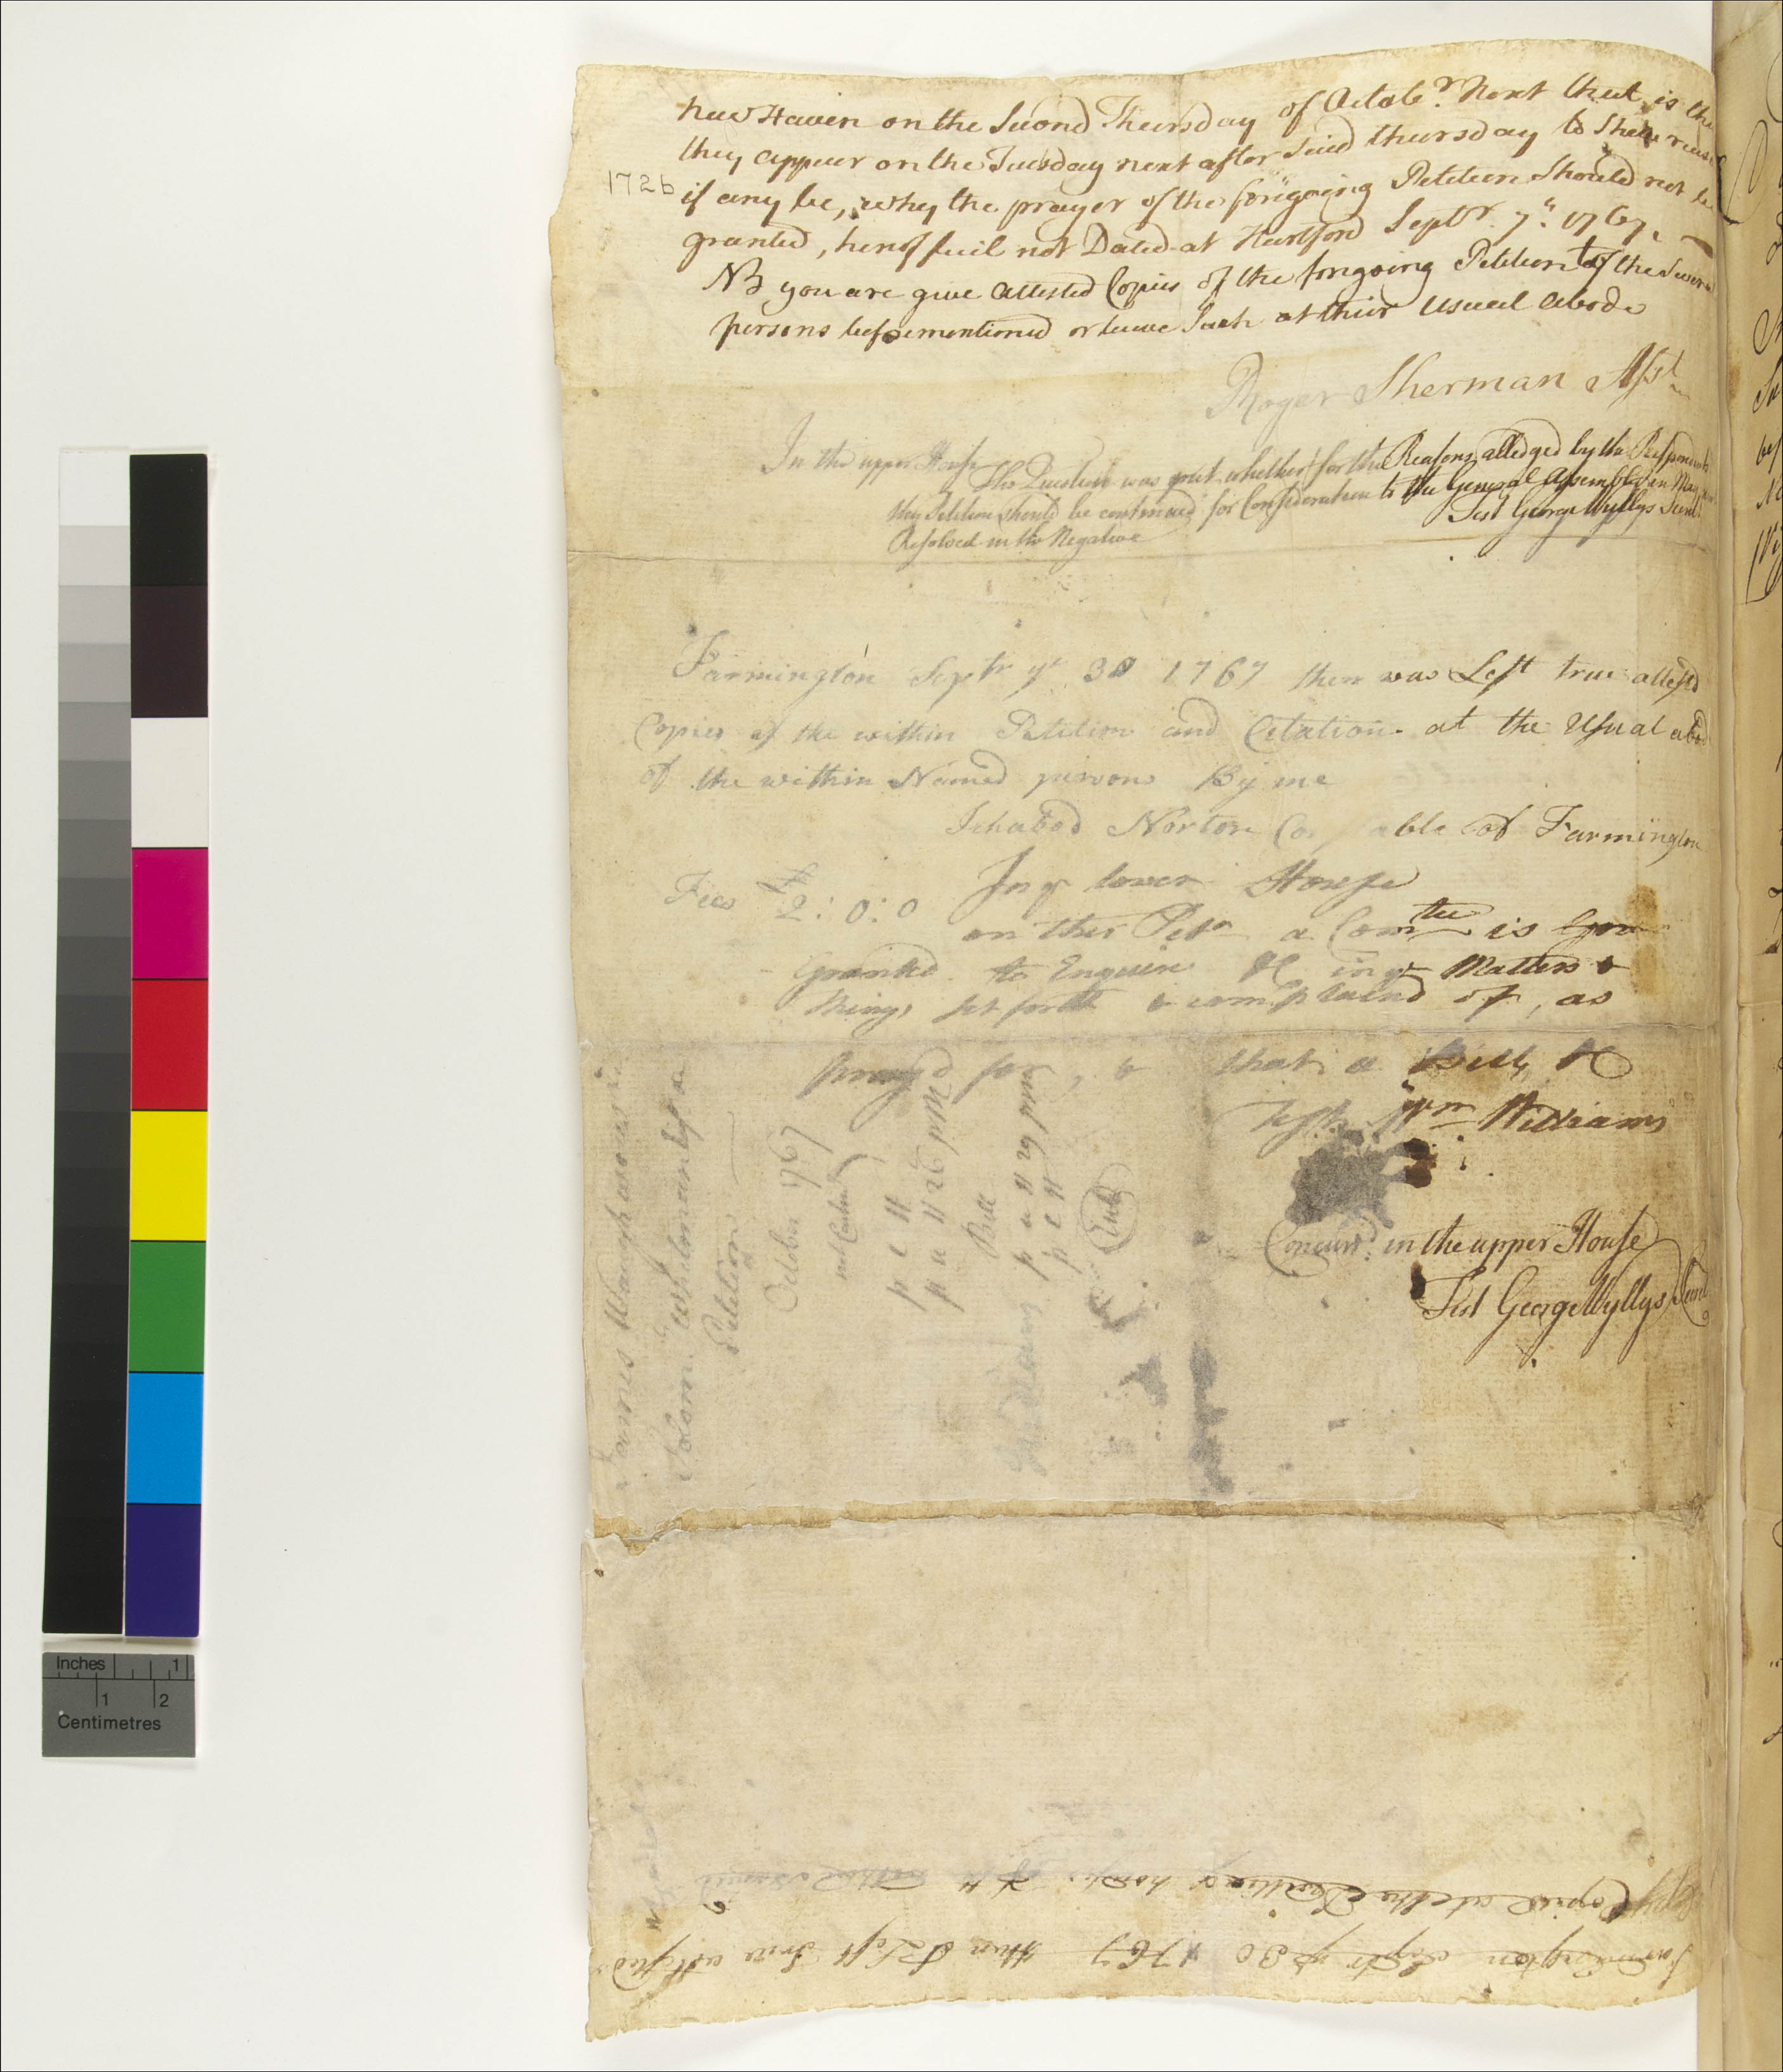 New Haven on the Second Thursday of Octobr. Next that is the
they appear on the Tuesday next after Said thursday to Shew reason
172b
if any be, why the prayer of the foregoing Petition Should not be
granted, hereof fail not Dated at Hartford Septr. 7th. 1767.
NB you are give attested Copies of the foregoing Petition to the Several
persons beforementioned or leave Such at their Usual abode
Roger Sherman Assist
In the upper House
The Question was put whether for the Reasons alledged by the Respondents
this Petition should be continued for Consideration to the General Assembly in May
Resolved in the Negative
Test George Wyllys Secret
Farmington Septr ye 30 1767 then was Left true attested
Copies of the within Petition and Citation at the Usual abode
of the within Named persons By me
Ichabod Norton Co able of Farmington
Fees 2 : 0 : 0
In ye lower House
on this Petn a Comtee is
Granted to Enquire &c in ye Matters &
things set forth & complaind of, as
prayd for, & that a Bill &c
Test Wm Williams
Concurrd. in the upper House
Test George Wyllys Secret
James Waugh
Solomn. Whitman
Petition
October 1767
p l H
p u H
Bill
p u H
p l H
Entd
Indians
Farmington Septr ye 30 1767 then I Left True attested
Copies at the Dwelling houses of